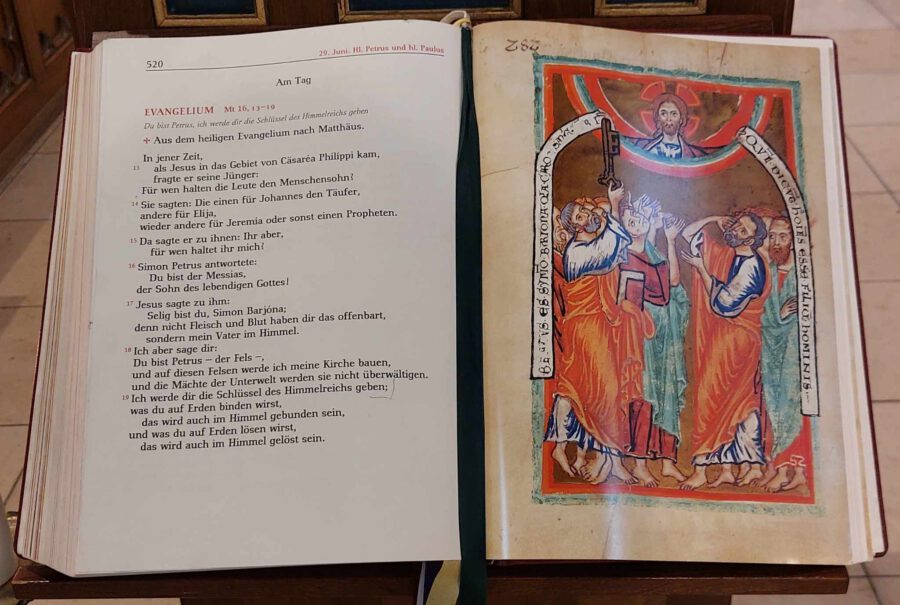 520
29. Juni. Hl. Petrus und hl. Paulus
Am Tag
EVANGELIUM Mt 16, 13–19
Du bist Petrus, ich werde dir die Schlüssel des Himmelreichs geben
✢ Aus dem heiligen Evangelium nach Matthäus.
In jener Zeit,
13 als Jesus in das Gebiet von Cäsaréa Philíppi kam,
fragte er seine Jünger:
Für wen halten die Leute den Menschensohn?
14 Sie sagten: Die einen für Johannes den Täufer,
andere für Elija,
wieder andere für Jeremia oder sonst einen Propheten.
15 Da sagte er zu ihnen: Ihr aber,
für wen haltet ihr mich?
16 Simon Petrus antwortete:
Du bist der Messias,
der Sohn des lebendigen Gottes!
17 Jesus sagte zu ihm:
Selig bist du, Simon Barjóna;
denn nicht Fleisch und Blut haben dir das offenbart,
sondern mein Vater im Himmel.
18 Ich aber sage dir:
Du bist Petrus – der Fels –,
und auf diesen Felsen werde ich meine Kirche bauen,
und die Mächte der Unterwelt werden sie nicht überwältigen.
19 Ich werde dir die Schlüssel des Himmelreichs geben;
was du auf Erden binden wirst,
das wird auch im Himmel gebunden sein,
und was du auf Erden lösen wirst,
das wird auch im Himmel gelöst sein.
282
BEATVS ES SIMO BARIONA QA CARO
QVE DICVT HOIES ESSE FILIVM HOMINIS